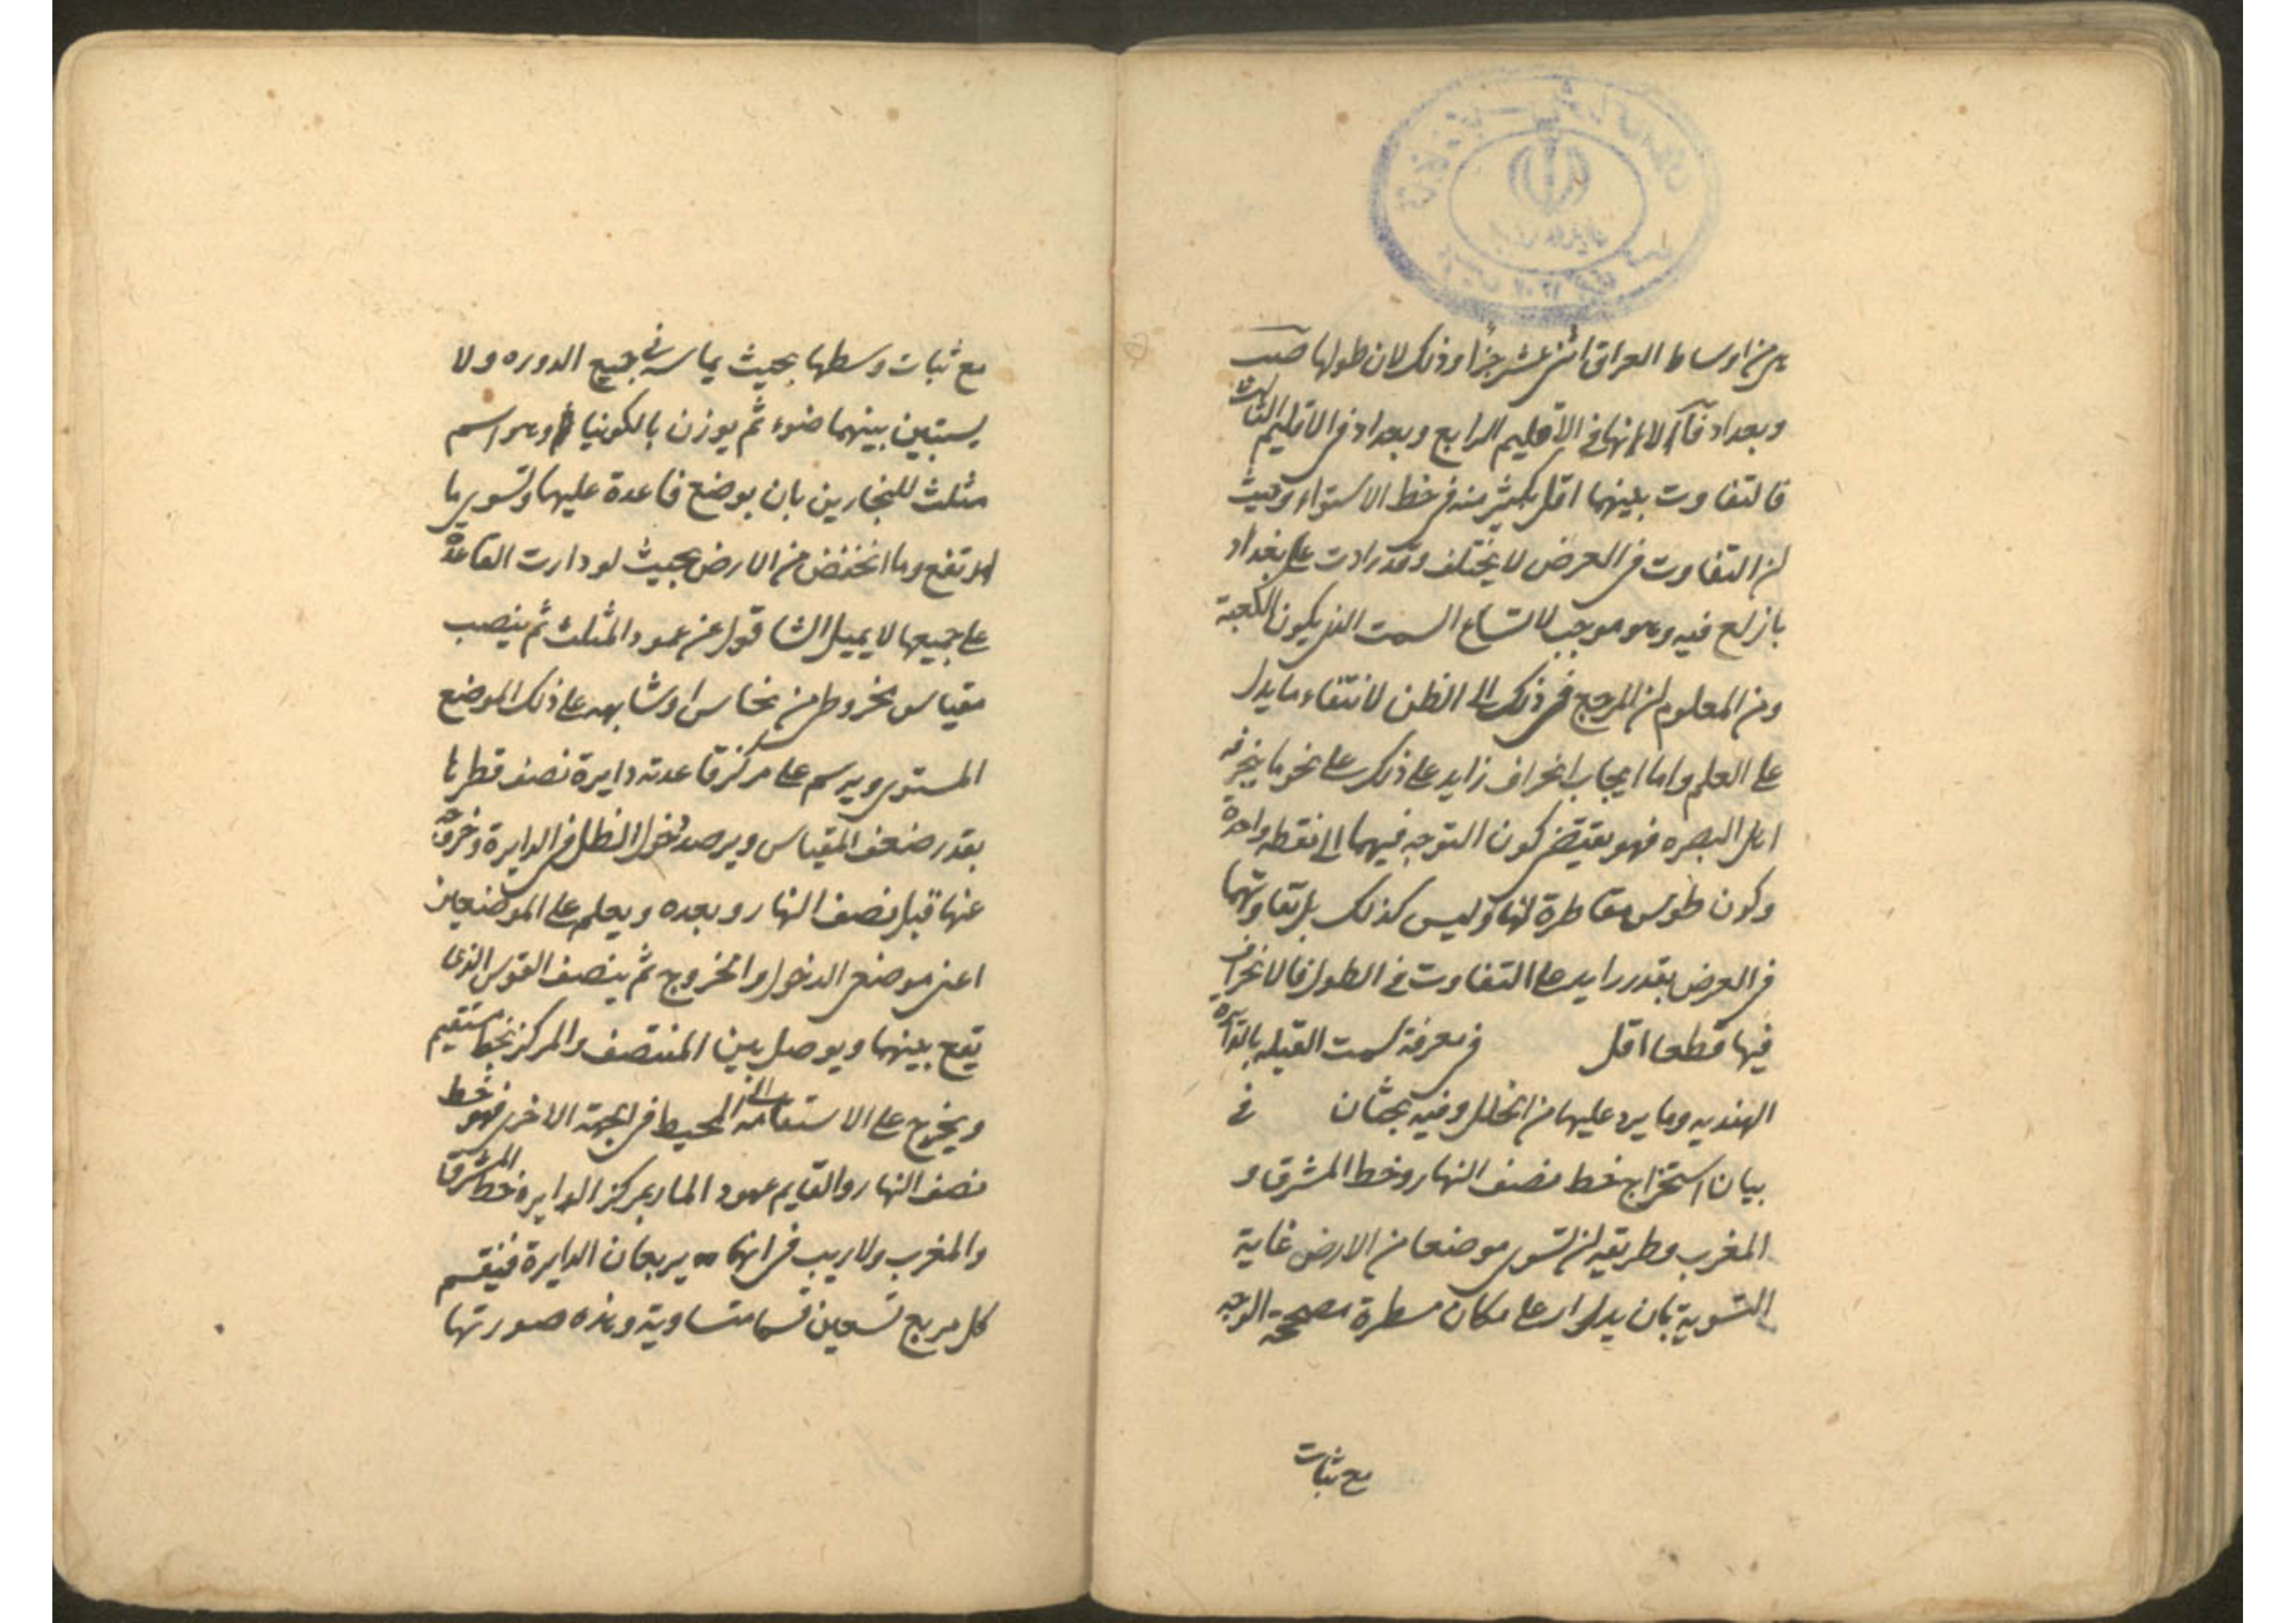 هي من اوساط العراق اثنى عشر جزأ وذلك لان طولها
وبغداد الا انها في الاقليم الرابع وبغداد في الاقليم الثالث
فالتفاوت بينهما اقل بكثير منه في خط الاستواء وحيث
ان التفاوت في العرض لا يختلف وقد زادت على بغداد
فيه وهو موجب لاتساع السمت الذي يكون الكعبة
ومن المعلوم ان المرجع في ذلك الى الظن لانتفاء ما يدل
على العلم واما ايجاب انحراف زايد على ذلك على نحو ما ينحرفه
اهل البصره فهو يقتضى كون التوجه فيهما الى نقطه واحدة
وكون طوس مقاطرة لها وليس كذلك بل تفاوتهما
في العرض بقدر زايد على التفاوت في الطول فالانحراف
فيها قطعا اقل في معرفة سمت القبله بالدايره
الهنديه وما يرد عليها من الخلل وفيه بحثان في
بيان استخراج خط نصف النهار وخط المشرق و
المغرب وطريقه ان تسوى موضعا من الارض غاية
التسوية بان يدار على مكان مسطرة مصححة الوجه
مع ثبات
مع ثبات وسطها بحيث يماسه في جميع الدوره ولا
يستبين بينهما ضوء ثم يوزن بالكونيا وهو اسم
مثلث للنجارين بان يوضع قاعدة عليها وتسوى ما
ارتفع وما انخفض من الارض بحيث لو دارت القاعدة
على جميعها لا يميل الشاقول عن عمود المثلث ثم ينصب
مقياس مخروط من نحاس او شابهه على ذلك الموضع
المستوى ويرسم على مركز قاعدته دايرة نصف قطرها
بقدر ضعف المقياس ويرصد دخول الظل في الدايرة وخروجه
عنها قبل نصف النهار وبعده ويعلم على الموضعين
اعنى موضعى الدخول والخروج ثم ينصف القوس الذى
يقع بينهما ويوصل بين المنتصف والمركز بخط مستقيم
ويخرج على الاستقامة الى المحيط في الجهة الاخرى فهو خط
نصف النهار والقايم عمود المار بمركز الدايره خط المشرق
والمغرب ولا ريب في انهما يربعان الدايرة فينقسم
كل مربع تسعين قسما متساوية وهذه صورتها